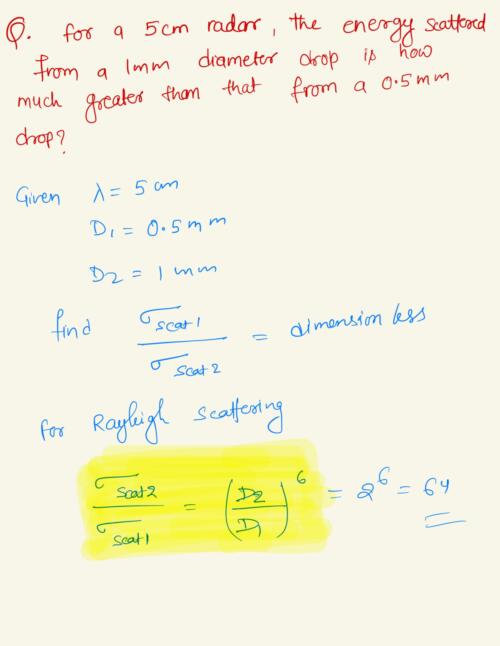 Q. for a 5cm radar, the energy scattered
from a 1mm diameter drop is how
much greater than that from a 0.5mm
drop?
Given λ = 5 cm
D₁ = 0.5 mm
D₂ = 1 mm
find σscat1 / σscat2 = dimension less
for Rayleigh scattering
σscat2 / σscat1 = (D₂ / D₁)⁶ = 2⁶ = 64